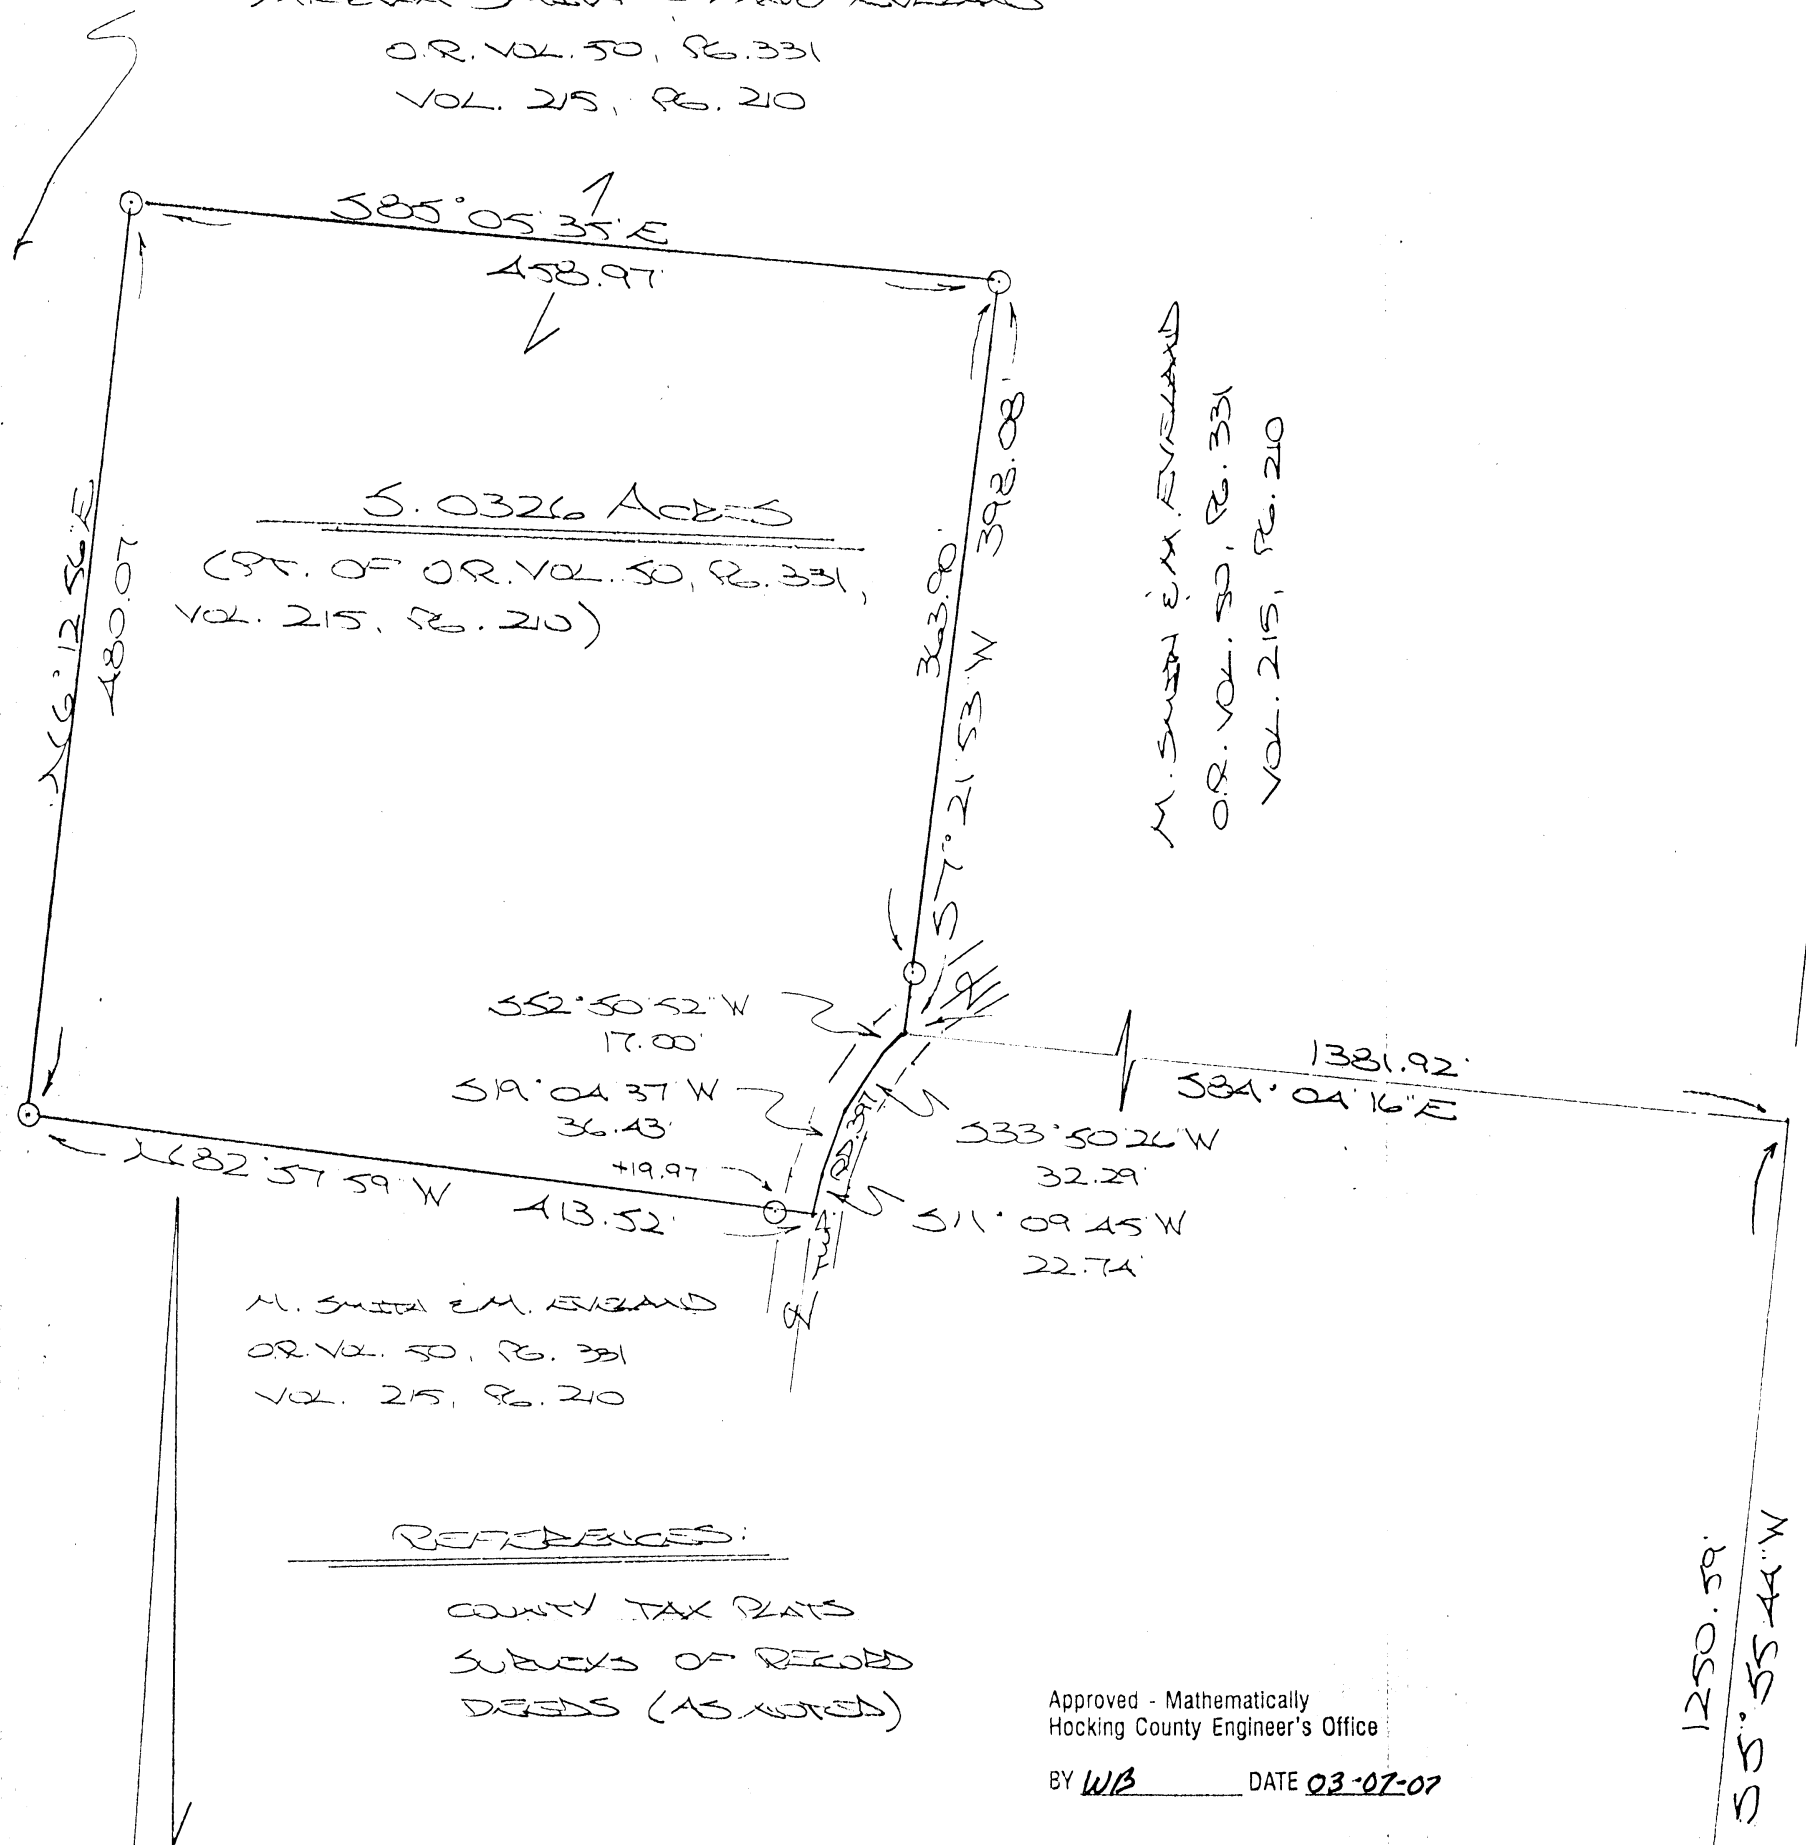 O.R. VOL. 50, PG. 331
VOL. 215, PG. 210
S85°05'35"E
458.97'
N6°12'56"E
480.07'
5.0326 ACRES
(PT. OF O.R. VOL. 50, PG. 331,
VOL. 215, PG. 210)
363.90'
398.08'
S7°21'53"W
M. SMITH & M. EVELAND
O.R. VOL. 50, PG. 331
VOL. 215, PG. 210
S52°50'52"W
17.00'
S19°04'37"W
36.43'
+19.97
S33°50'26"W
32.29'
S11°09'45"W
22.74'
TWP. RD. 397
1381.92'
S84°04'16"E
N82°57'59"W
413.52'
M. SMITH & M. EVELAND
O.R. VOL. 50, PG. 331
VOL. 215, PG. 210
REFERENCES:
COUNTY TAX PLATS
SURVEYS OF RECORD
DEEDS (AS NOTED)
1250.59'
S5°55'44"W
Approved - Mathematically
Hocking County Engineer's Office
BY WB DATE 03-07-07